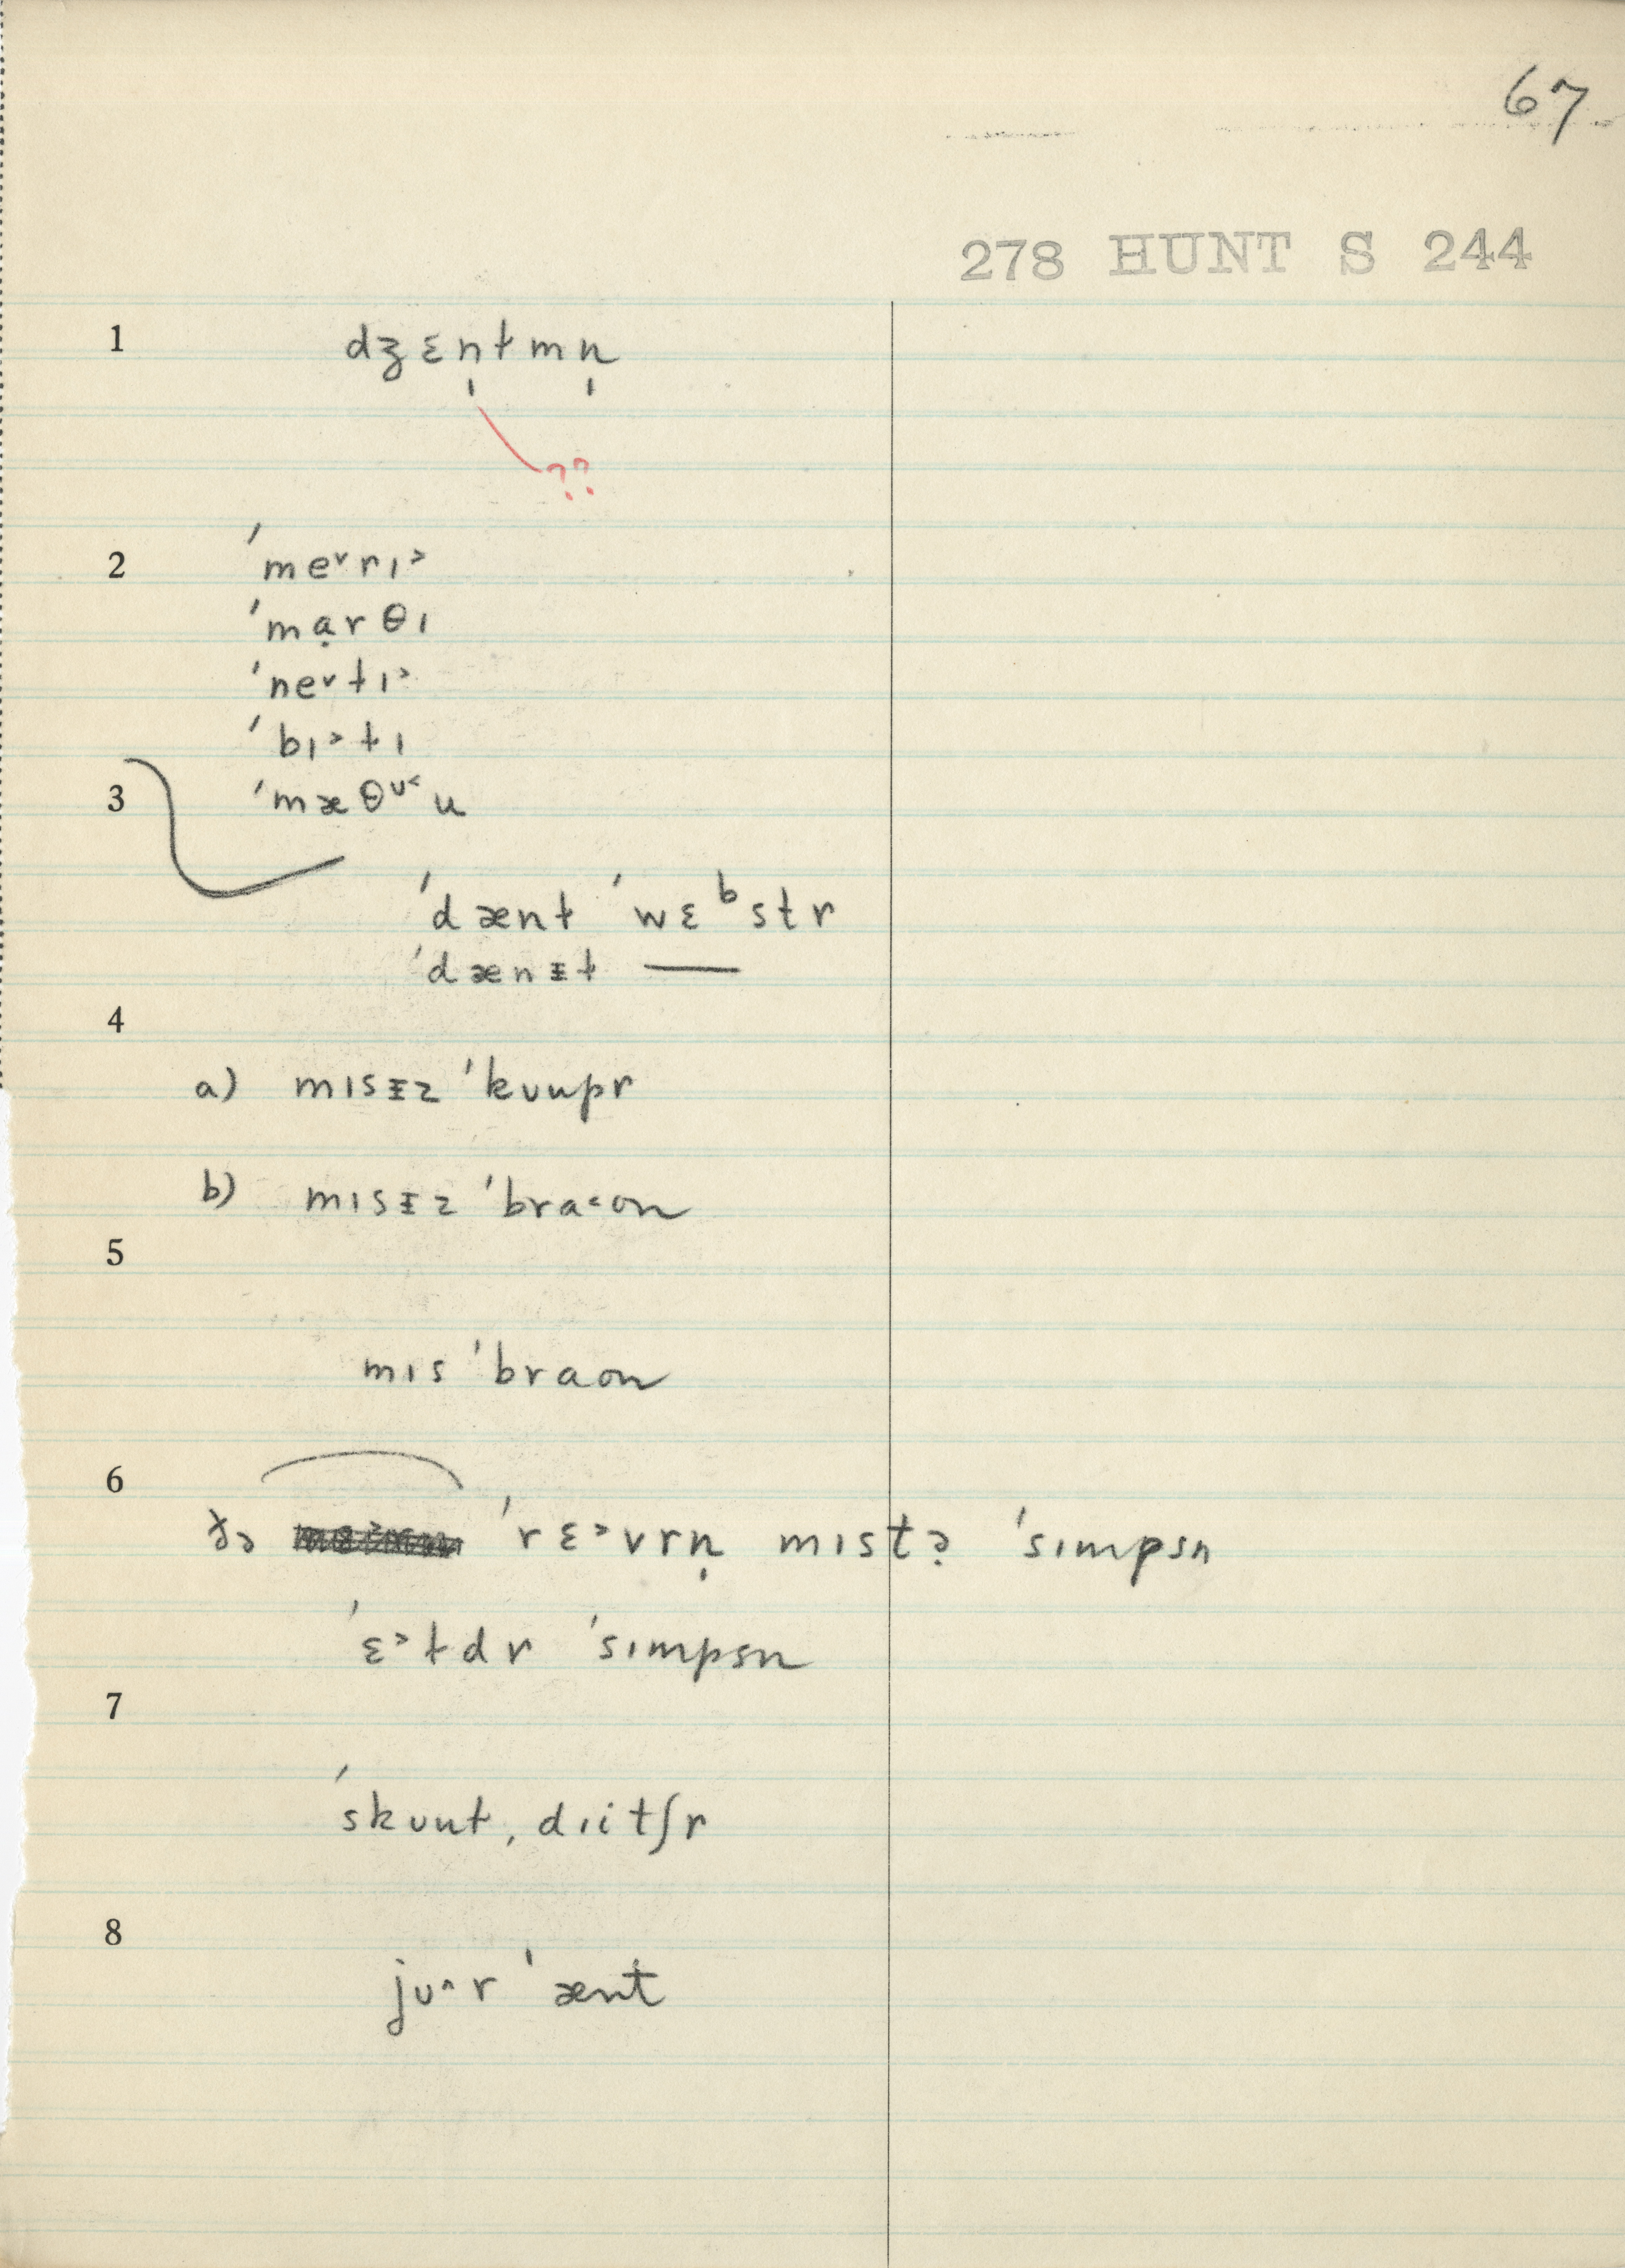 67
278 HUNT S 244
1 dʒɛn̩ɫmn̩
??
2 ˈme˅rɪ˃
ˈmạrθɪ
ˈne˅ɫɪ˃
ˈbɪ˃ɫɪ
3 ˈmæθᶷ˂u
ˈdænɫ ˈwɛᵇstr
ˈdænᵻɫ —
4
a) mɪsᵻz ˈkʊupr
b) mɪsᵻz ˈbra˂on
5
mɪs ˈbraon
6
ðə ˈrɛ˃vrn̩ mɪstə̣ ˈsɪmpsn
ˈɛ˃ɫdr ˈsɪmpsn
7
ˈskʊuɫˌdɪitʃr
8
jʊ˄r ˈænt